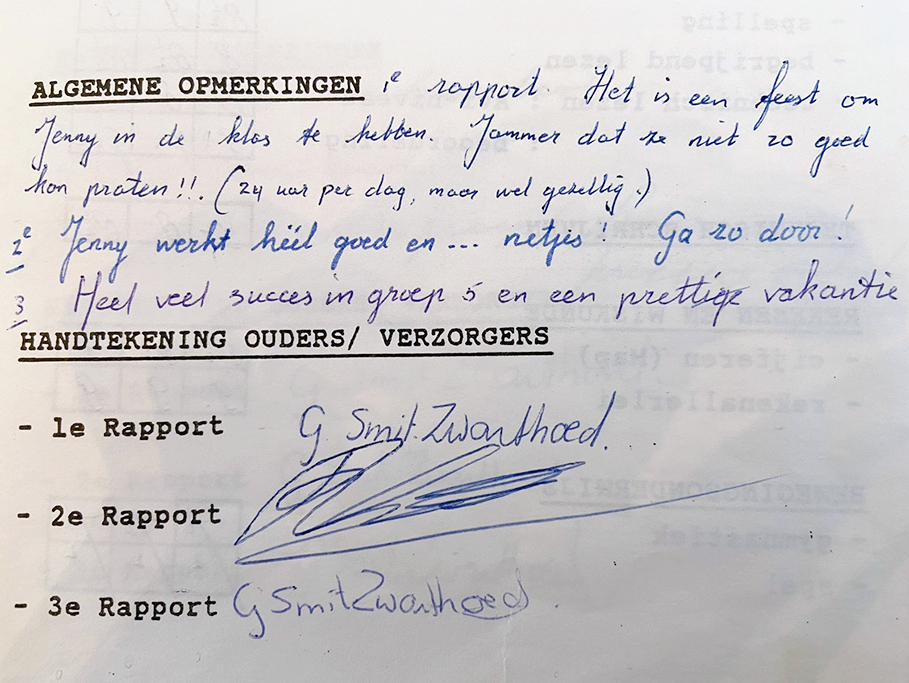 ALGEMENE OPMERKINGEN 1e rapport. Het is een feest om
Jenny in de klas te hebben. Jammer dat ze niet zo goed
kan praten!!. (24 uur per dag, maar wel gezellig.)
2e Jenny werkt héél goed en... netjes! Ga zo door!
3 Heel veel succes in groep 5 en een prettige vakantie
HANDTEKENING OUDERS/ VERZORGERS
- 1e Rapport G Smit-Zwarthoed.
- 2e Rapport
- 3e Rapport G Smit Zwarthoed.
- spelling
- begrijpend lezen
REKENEN EN WISKUNDE
- cijferen (Map)
- rekenallerlei
BEWEGINGSONDERWIJS
- gymnastiek
- spel